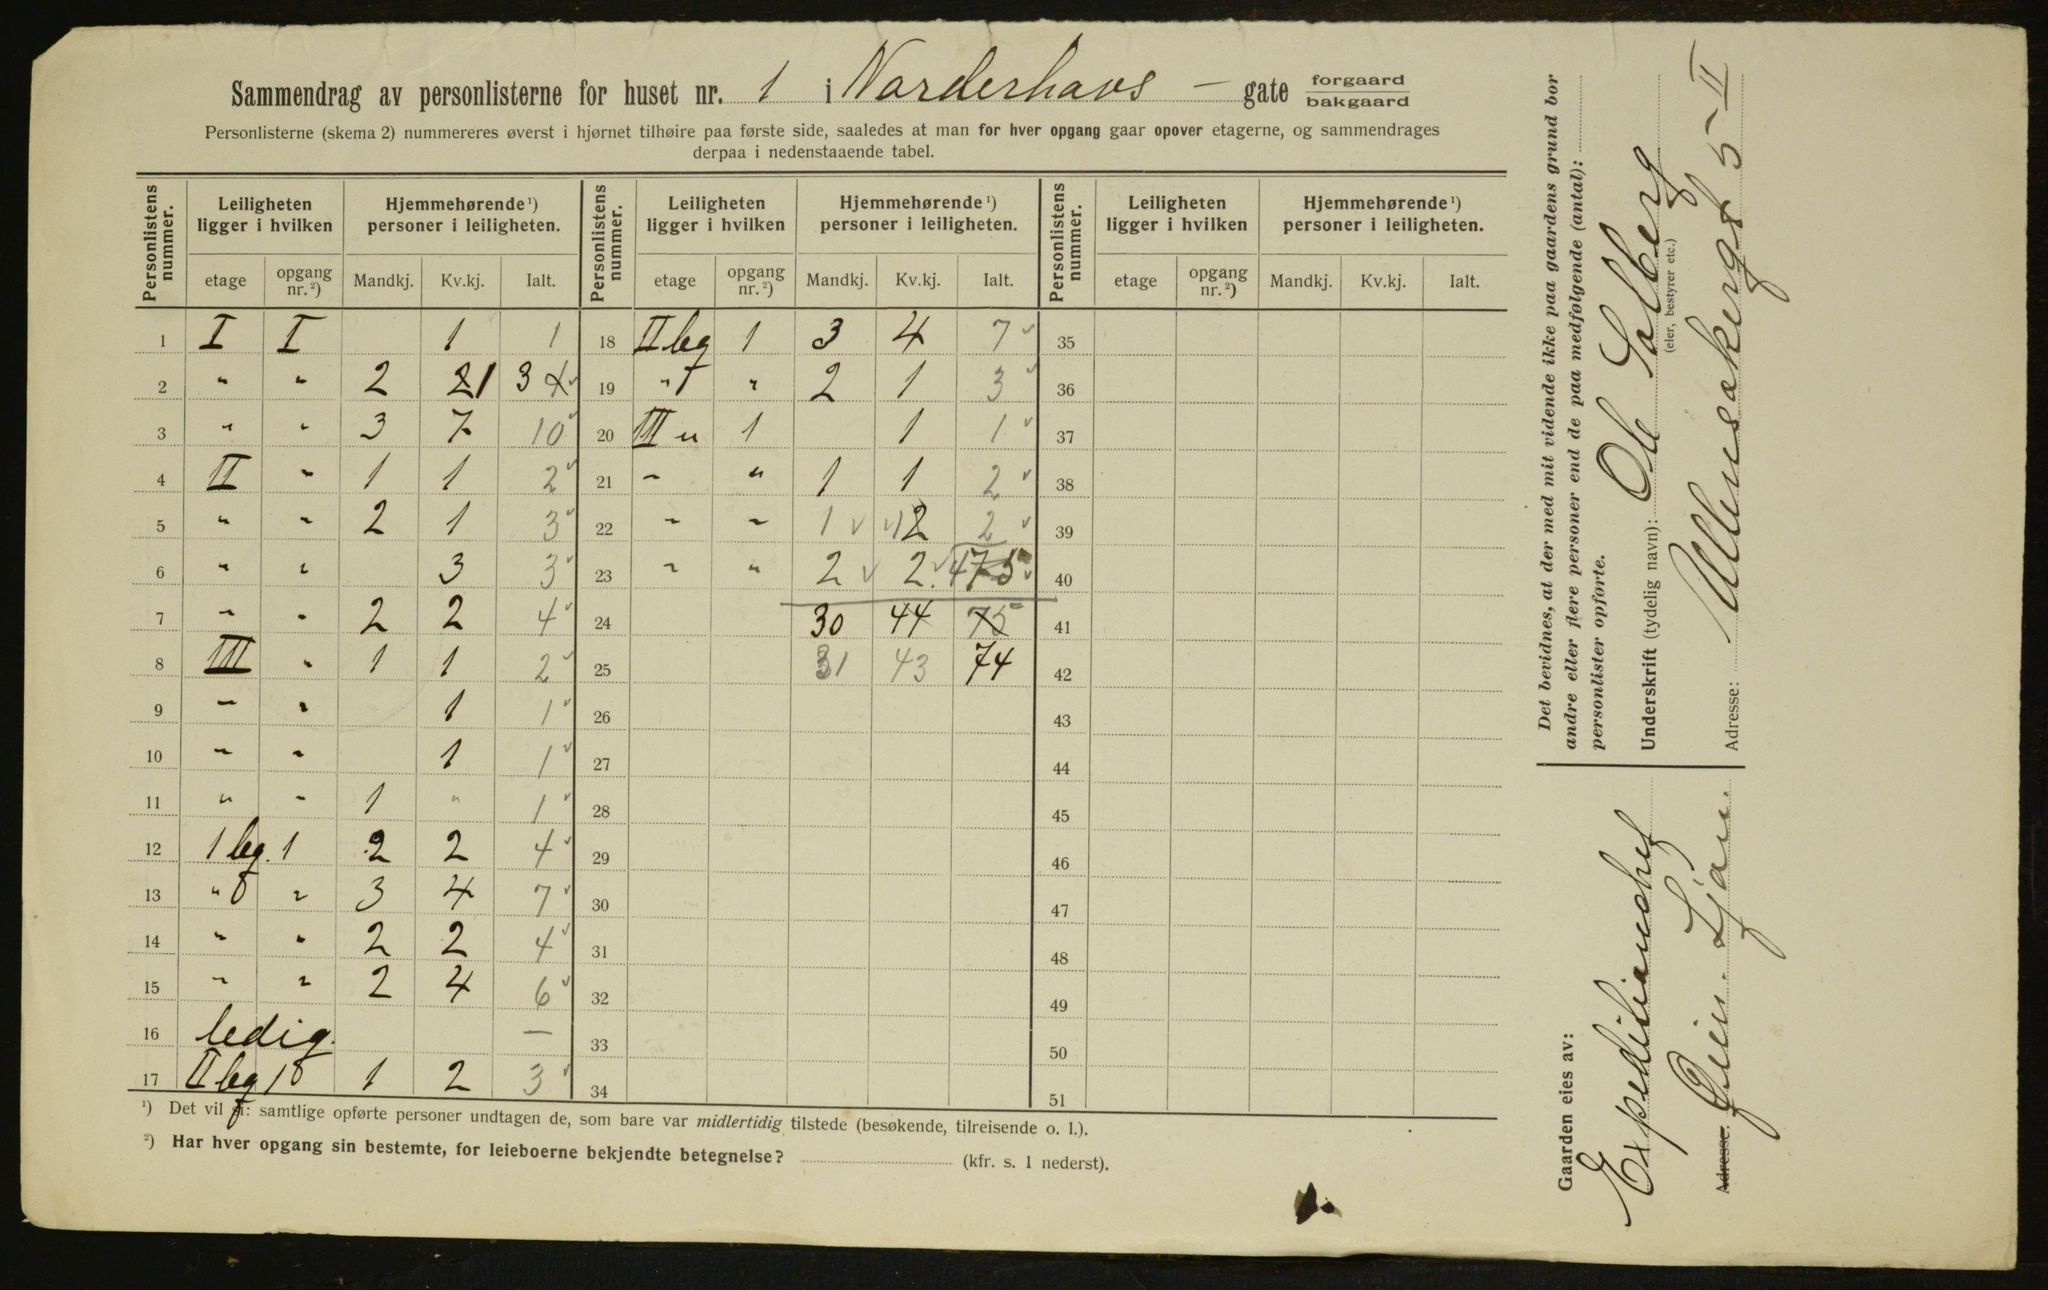 Sammendrag av personlisterne for huset nr. 1 i Norderhovs - gate forgaard bakgaard
Personlisterne (skema 2) nummereres øverst i hjørnet tilhøire paa første side, saaledes at man for hver opgang gaar opover etagerne, og sammendrages
derpaa i nedenstaaende tabel.
Personlistens nummer. Leiligheten ligger i hvilken Hjemmehørende¹) personer i leiligheten. Personlistens nummer. Leiligheten ligger i hvilken Hjemmehørende¹) personer i leiligheten. Personlistens nummer. Leiligheten ligger i hvilken Hjemmehørende¹) personer i leiligheten.
etage opgang nr.²) Mandkj. Kv.kj. Ialt. etage opgang nr.²) Mandkj. Kv.kj. Ialt. etage opgang nr.²) Mandkj. Kv.kj. Ialt.
1 I I 1 1 18 II bg 1 3 4 7 35
2 " " 2 21 3 4 19 " " 2 1 3 36
3 " " 3 7 10 20 III " 1 1 1 37
4 II " 1 1 2 21 " " 1 1 2 38
5 " " 2 1 3 22 " " 1 12 2 39
6 " " 3 3 23 " " 2 2 40
7 " " 2 2 4 24 30 44 75 41
8 III " 1 1 2 25 31 43 74 42
9 " " 1 1 26 43
10 " " 1 1 27 44
11 " " 1 " 1 28 45
12 1 bg. 1 2 2 4 29 46
13 " " 3 4 7 30 47
14 " " 2 2 4 31 48
15 " " 2 4 6 32 49
16 ledig. — 33 50
17 II bg 1 1 2 3 34 51
¹) Det vil si: samtlige opførte personer undtagen de, som bare var midlertidig tilstede (besøkende, tilreisende o. l.).
²) Har hver opgang sin bestemte, for leieboerne bekjendte betegnelse? (kfr. s. 1 nederst).
Det bevidnes, at der med mit vidende ikke paa gaardens grund bor
andre eller flere personer end de paa medfølgende (antal):
personlister opførte.
Underskrift (tydelig navn): Ole Solberg
(eier, bestyrer etc.)
Adresse: Ullensakergt 5 - II
Gaarden eies av:
Expeditionschef
Adresse. Qvien. Ljan.